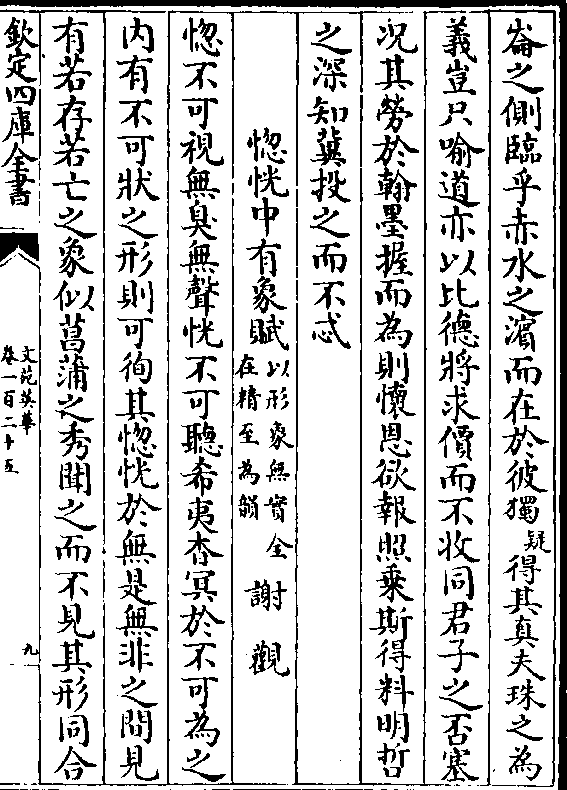 崙之側臨乎赤水之濵而在於彼獨疑得其真夫珠之為
義豈只喻道亦以比徳將求價而不收同君子之否塞
况其勞於翰墨握而為則懷恩欲報照乗斯得料明哲
之深知冀投之而不忒
惚恍中有象賦以形象無實全在精至為韻 謝觀
惚不可視無臭無聲恍不可聽希夷杳冥於不可為之
内有不可狀之形則可徇其惚恍於無是無非之間見
有若存若亡之象似菖蒲之秀聞之而不見其形同合
欽定四庫全書
文苑英華
卷一百二十五
九